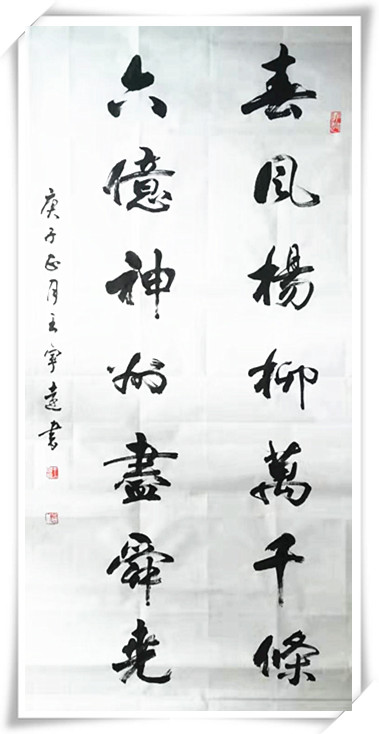 春風楊柳萬千條
六億神州盡舜堯
庚子正月王寧遠書